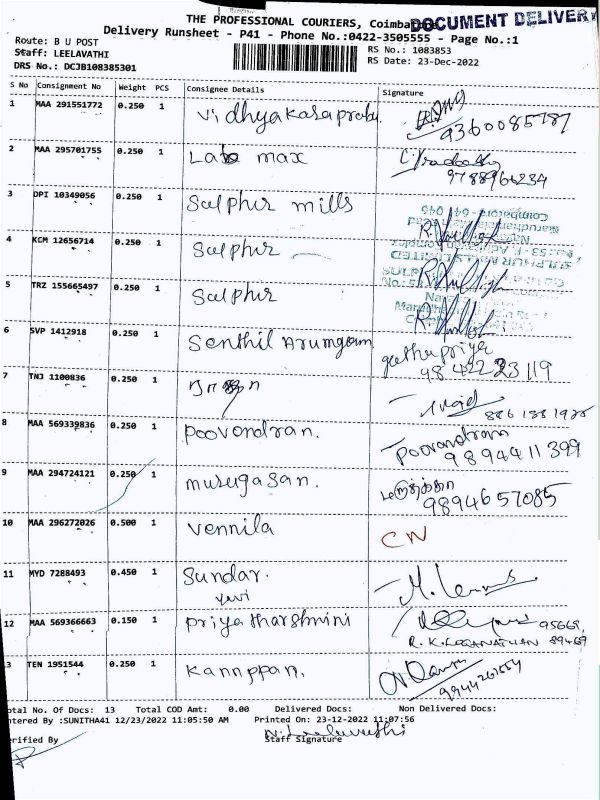 THE PROFESSIONAL COURIERS, Coimbatore
DOCUMENT DELIVERY
Delivery Runsheet - P41 - Phone No.:0422-3505555 - Page No.:1
Route: B U POST
Staff: LEELAVATHI
DRS No.: DCJB108385301
RS No.: 1083853
RS Date: 23-Dec-2022
S No Consignment No Weight PCS Consignee Details Signature
1 MAA 291551772 0.250 1 Vidhya kasa prabu 9360085787
2 MAA 295701755 0.250 1 max 9788966234
3 DPI 10349056 0.250 1 Sulphur mills
4 KCM 12656714 0.250 1 Sulphur
5 TRZ 155665497 0.250 1 Sulphur
6 SVP 1412918 0.250 1 Senthil Arumgam geethapriya
9842223119
7 TNJ 1100836 0.250 1
8 MAA 569339836 0.250 1 Poovondran. Poovandram
9894411399
9 MAA 294724121 0.250 1 murugasan.
9894657085
10 MAA 296272026 0.500 1 Vennila CN
11 MYD 7288493 0.450 1 Sundar.
yuvi
12 MAA 569366663 0.150 1 Priya tharshnini 95669
R. K. LOGANATHAN 89469
13 TEN 1951544 0.250 1 Kannppan.
9944261554
Total No. Of Docs: 13 Total COD Amt: 0.00 Delivered Docs: Non Delivered Docs:
Entered By :SUNITHA41 12/23/2022 11:05:50 AM Printed On: 23-12-2022 11:07:56
N. Leelavathi
Verified By Staff Signature